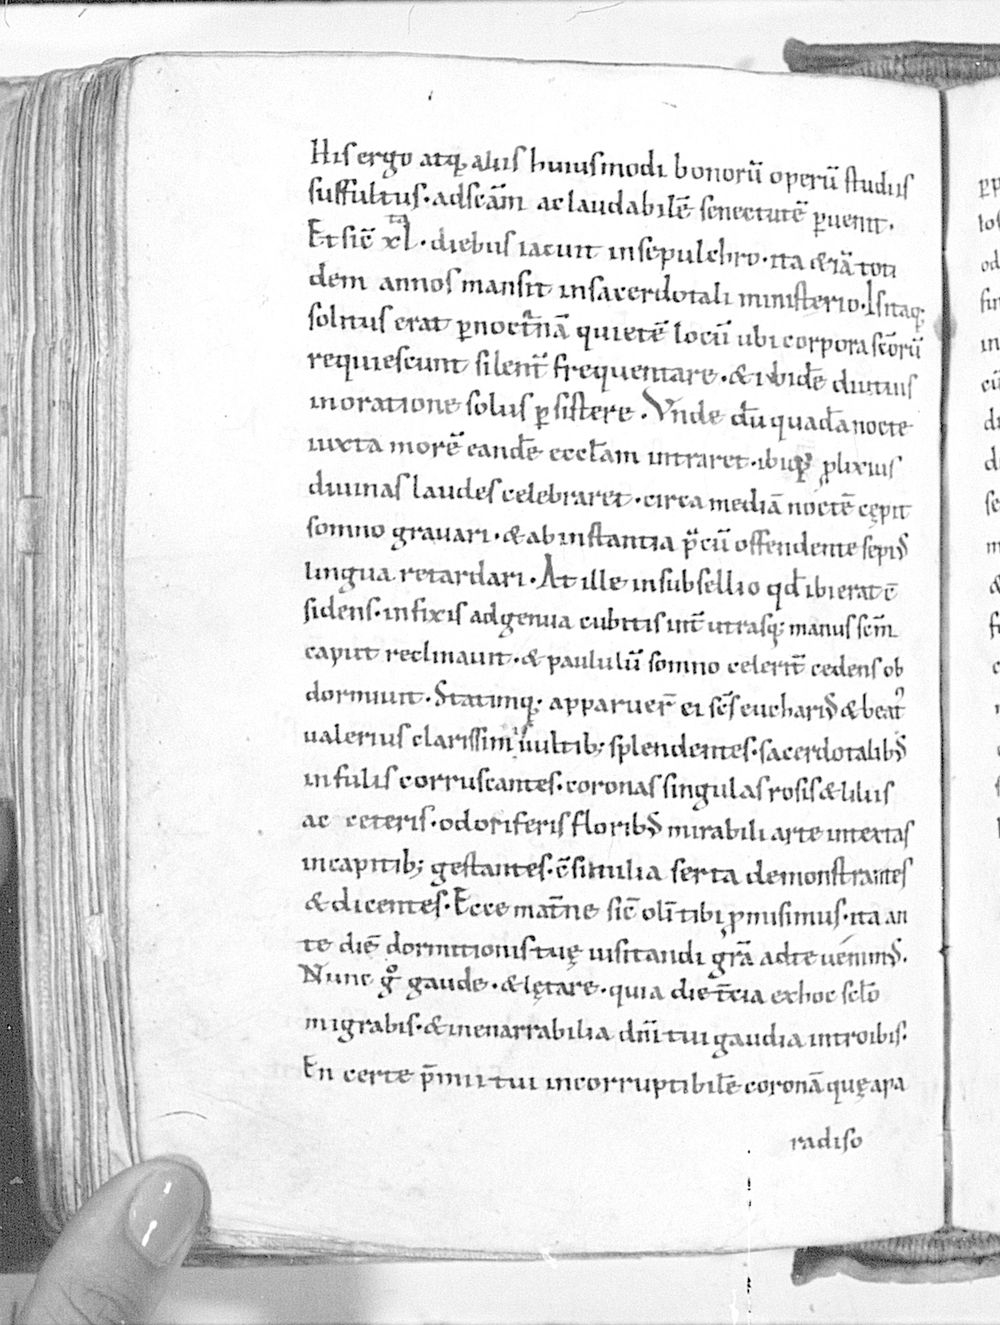 Hıſ ergo atq; alııs huıuſmodı bonorū operū ſtudııſ
ſuffultuſ · ad ſcām ac laudabılē ſenectutē ꝑuenıt ·
Et ſıc̄ xlᵗᵃ · dıebuſ ıacuıt ın ſepulchro · ıta &ıā totı
dem annoſ manſıt ın ſacerdotalı mınıſterıo · Iſ ıtaq;
ſolıtuſ erat ꝑ nocturnā quıetē locū ubı corpora ſcōrū
requıeſcunt ſılent̄ frequentare · & ıbıdē dıutıuſ
ın oratıone ſoluſ ꝑſıſtere · Vnde dū quadā nocte
ıuxta morē eandē eccl̄am ıntraret · ıbıq; ꝓlıxıuſ
dıuınaſ laudeſ celebraret · cırca medıā noctē cępıt
ſomno grauarı · & ab ınſtantıa p̄cū offendente ſepıꝰ
lıngua retardarı · At ılle ın ſubſellıo qd̄ ıbı erat c̄
ſıdenſ · ınfıxıſ ad genua cubıtıſ ınt̄ utraſq; manuſ ſem̄
caput reclınauıt · & paululū ſomno celerıt̄ cedenſ ob
dormıuıt · Statımq; apparuer̄ eı ſc̄ſ eucharıꝰ & beatꝰ
ualerıuſ clarıſſımıſ uultıb; ſplendenteſ · ſacerdotalıbꝰ
ınfulıſ corruſcanteſ · coronaſ ſıngulaſ roſıſ & lılııſ
ac ceterıſ · odorıferıſ florıbꝰ mırabılı arte ıntextaſ
ın capıtıb; geſtanteſ · c̄ſımılıa ſerta demonſtranteſ
& dıcenteſ · Ecce mat̄ne ſıc̄ olī tıbı ꝓmıſımuſ · ıta an
te dıē dormıtıonıſ tuę uıſıtandı gr̄a ad te uenımꝰ ·
Nunc gͦ gaude · & lętare · quıa dıe t̄cıa ex hoc ſcl̄o
mıgrabıſ · & ınenarrabılıa dn̄ı tuı gaudıa ıntroıbıſ ·
En certe p̄mıı tuı ıncorruptıbılē coronā quę a pa
radıſo